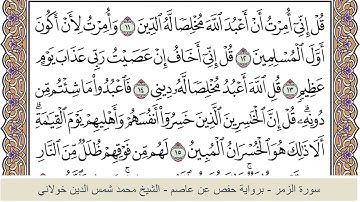 قُلْ إِنِّىٓ أُمِرْتُ أَنْ أَعْبُدَ ٱللَّهَ مُخْلِصًا لَّهُ ٱلدِّينَ ١١ وَأُمِرْتُ لِأَنْ أَكُونَ
أَوَّلَ ٱلْمُسْلِمِينَ ١٢ قُلْ إِنِّىٓ أَخَافُ إِنْ عَصَيْتُ رَبِّى عَذَابَ يَوْمٍ
عَظِيمٍ ١٣ قُلِ ٱللَّهَ أَعْبُدُ مُخْلِصًا لَّهُۥ دِينِى ١٤ فَٱعْبُدُوا۟ مَا شِئْتُم مِّن
دُونِهِۦ ۗ قُلْ إِنَّ ٱلْخَٰسِرِينَ ٱلَّذِينَ خَسِرُوٓا۟ أَنفُسَهُمْ وَأَهْلِيهِمْ يَوْمَ ٱلْقِيَٰمَةِ ۗ
أَلَا ذَٰلِكَ هُوَ ٱلْخُسْرَانُ ٱلْمُبِينُ ١٥ لَهُم مِّن فَوْقِهِمْ ظُلَلٌ مِّنَ ٱلنَّارِ
سورة الزمر - برواية حفص عن عاصم - الشيخ محمد شمس الدين خولاني